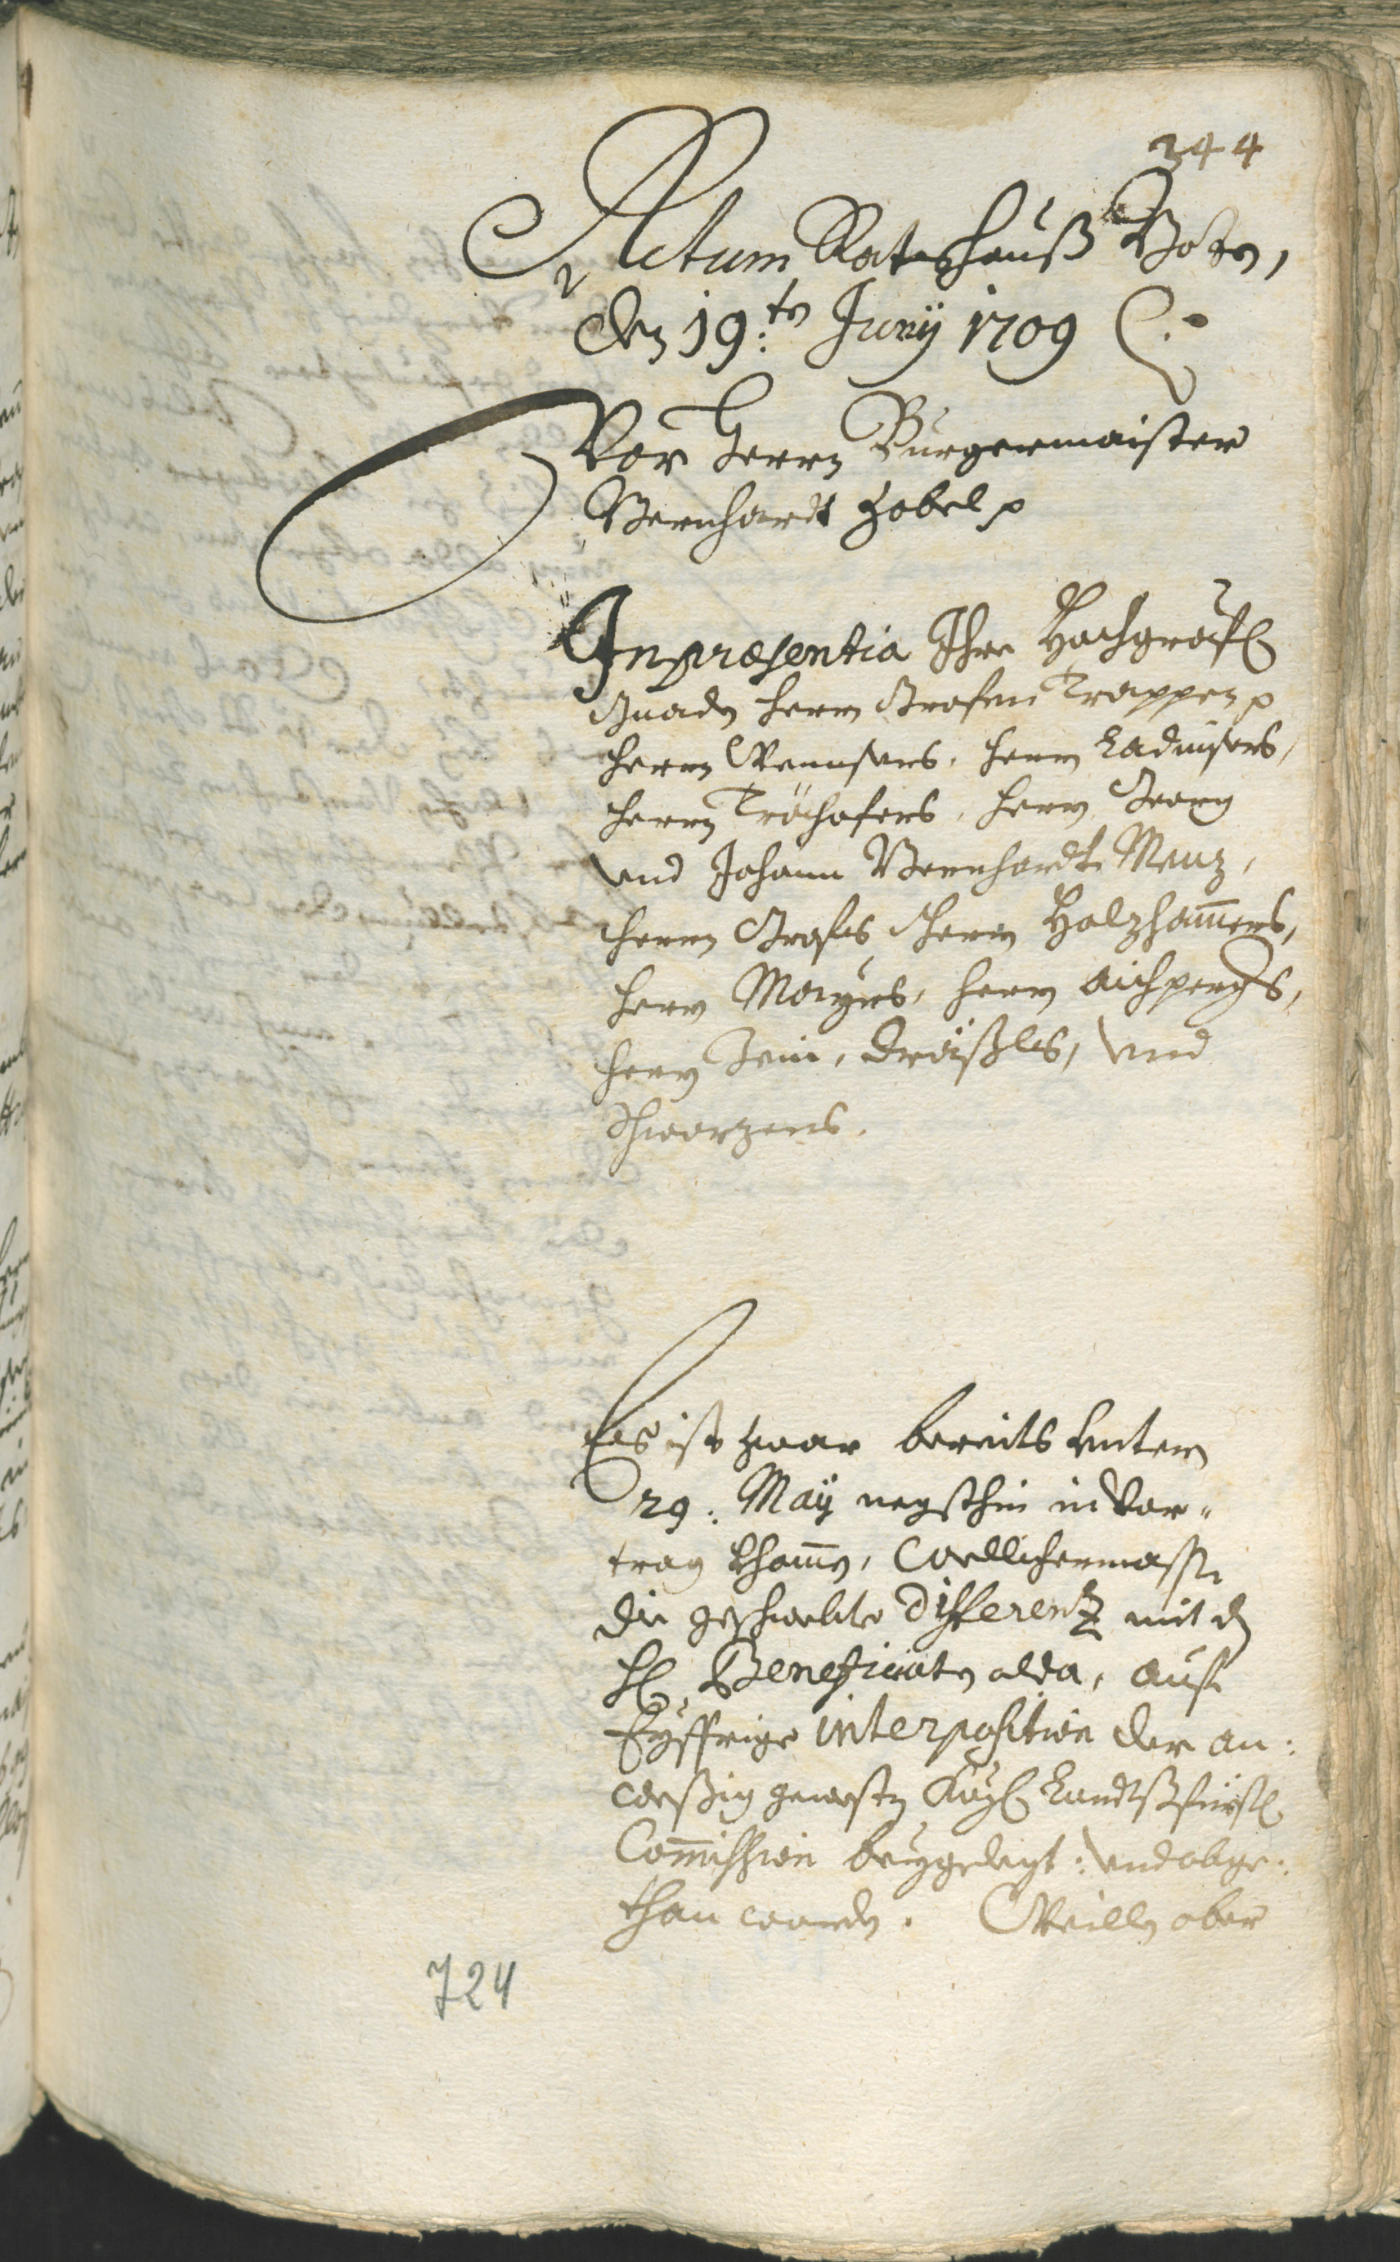 344
Actum Rathshauß Bozn,
den 19.ten Junÿ 1709
Vor Herrn Burgermaister
Bernhardt Zobel
In præsentia Ihre Hochgräfl
Gnadn Herrn Grafen Trappen
Herrn Wenseres, Herrn Ladurners,
Herrn Tröchafers, Herrn Georg
und Johann Bernhardt Menz,
Herrn Grafes, Herrn Holzhamers,
Herrn Mayrs, Herrn Aichpergs,
Herrn Jenin, Dräxls, und
Schwarzens.
Es ist zwar bereits Untern
29. Maÿ negsthin in Vor-
trag khomen, Wellichermassen
die geschwebte Differentz mit dn
H. Beneficiatn alda, auf
Eyffrige interposition der an-
weßig gewestn Kayl. Landtsfürstl.
Commission beygelegt und abge-
than worden. Weilln aber
724